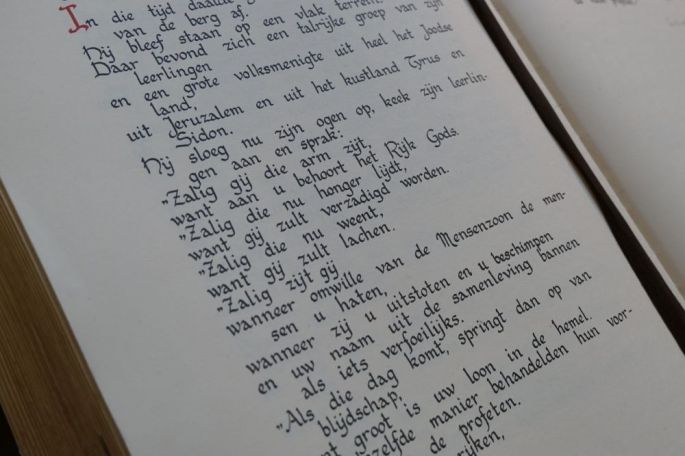 In die tijd daalde
van de berg af.
Hij bleef staan op een vlak terrein.
Daar bevond zich een talrijke groep van zijn
leerlingen
en een grote volksmenigte uit heel het Joodse
land,
uit Jeruzalem en uit het kustland Tyrus en
Sidon.
Hij sloeg nu zijn ogen op, keek zijn leerlin-
gen aan en sprak:
„Zalig gij die arm zijt,
want aan u behoort het Rijk Gods.
„Zalig die nu honger lijdt,
want gij zult verzadigd worden.
„Zalig die nu weent,
want gij zult lachen.
„Zalig zijt gij
wanneer omwille van de Mensenzoon de men-
sen u haten,
wanneer zij u uitstoten en u beschimpen
en uw naam uit de samenleving bannen
als iets verfoeilijks.
„Als die dag komt, springt dan op van
blijdschap,
groot is uw loon in de hemel.
manier behandelden hun voor-
de profeten.